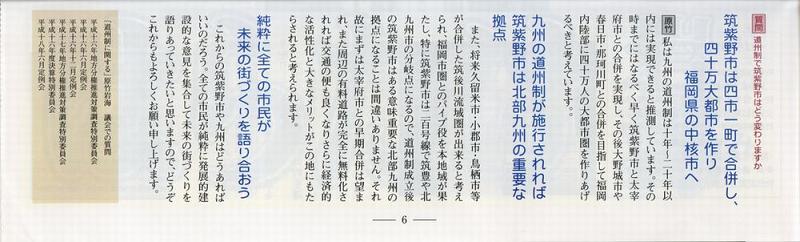 質問 道州制で筑紫野市はどう変わりますか
筑紫野市は四市一町で合併し、
四十万大都市を作り
福岡県の中核市へ
原竹 私は九州の道州制は十年～二十年以
内には実現できると推測しています。その
時までにはなるべく早く筑紫野市と太宰
府市との合併を実現し、その後大野城市や
春日市・那珂川町との合併を目指して福岡
内陸部に四十万人の大都市圏を作りあげ
るべきと考えています。
九州の道州制が施行されれば
筑紫野市は北部九州の重要な
拠点
また、将来久留米市・小郡市・鳥栖市等
が合併した筑後川流域圏が出来ると考え
られ、福岡市圏とのパイプ役を本地域が果
たし、特に筑紫野市は二百号線で筑豊や北
九州市の分岐点になるので、道州制成立後
の筑紫野市はある意味重要な北部九州の
拠点になることは間違いありません。それ
故にまずは太宰府市との早期合併は望ま
れ、また周辺の有料道路が完全に無料化さ
れれば交通の便も良くなりさらに経済的
な活性化と大きなメリットがこの地にもた
らされると考えられます。
純粋に全ての市民が
未来の街づくりを語り合おう
これからの筑紫野市や九州はどうあれば
いいのだろう。全ての市民が純粋に発展的建
設的な意見を集合して未来の街づくりを
語りあっていきたいと思いますので、どうぞ
これからもよろしくお願い申し上げます。
「道州制に関する」原竹岩海 議会での質問
平成十六年地方分権推進対策調査特別委員会
平成十六年六月定例会
平成十七年十二月定例会
平成十七年地方分権推進対策調査特別委員会
平成十六年度決算特別委員会
平成十八年六月定例会
6